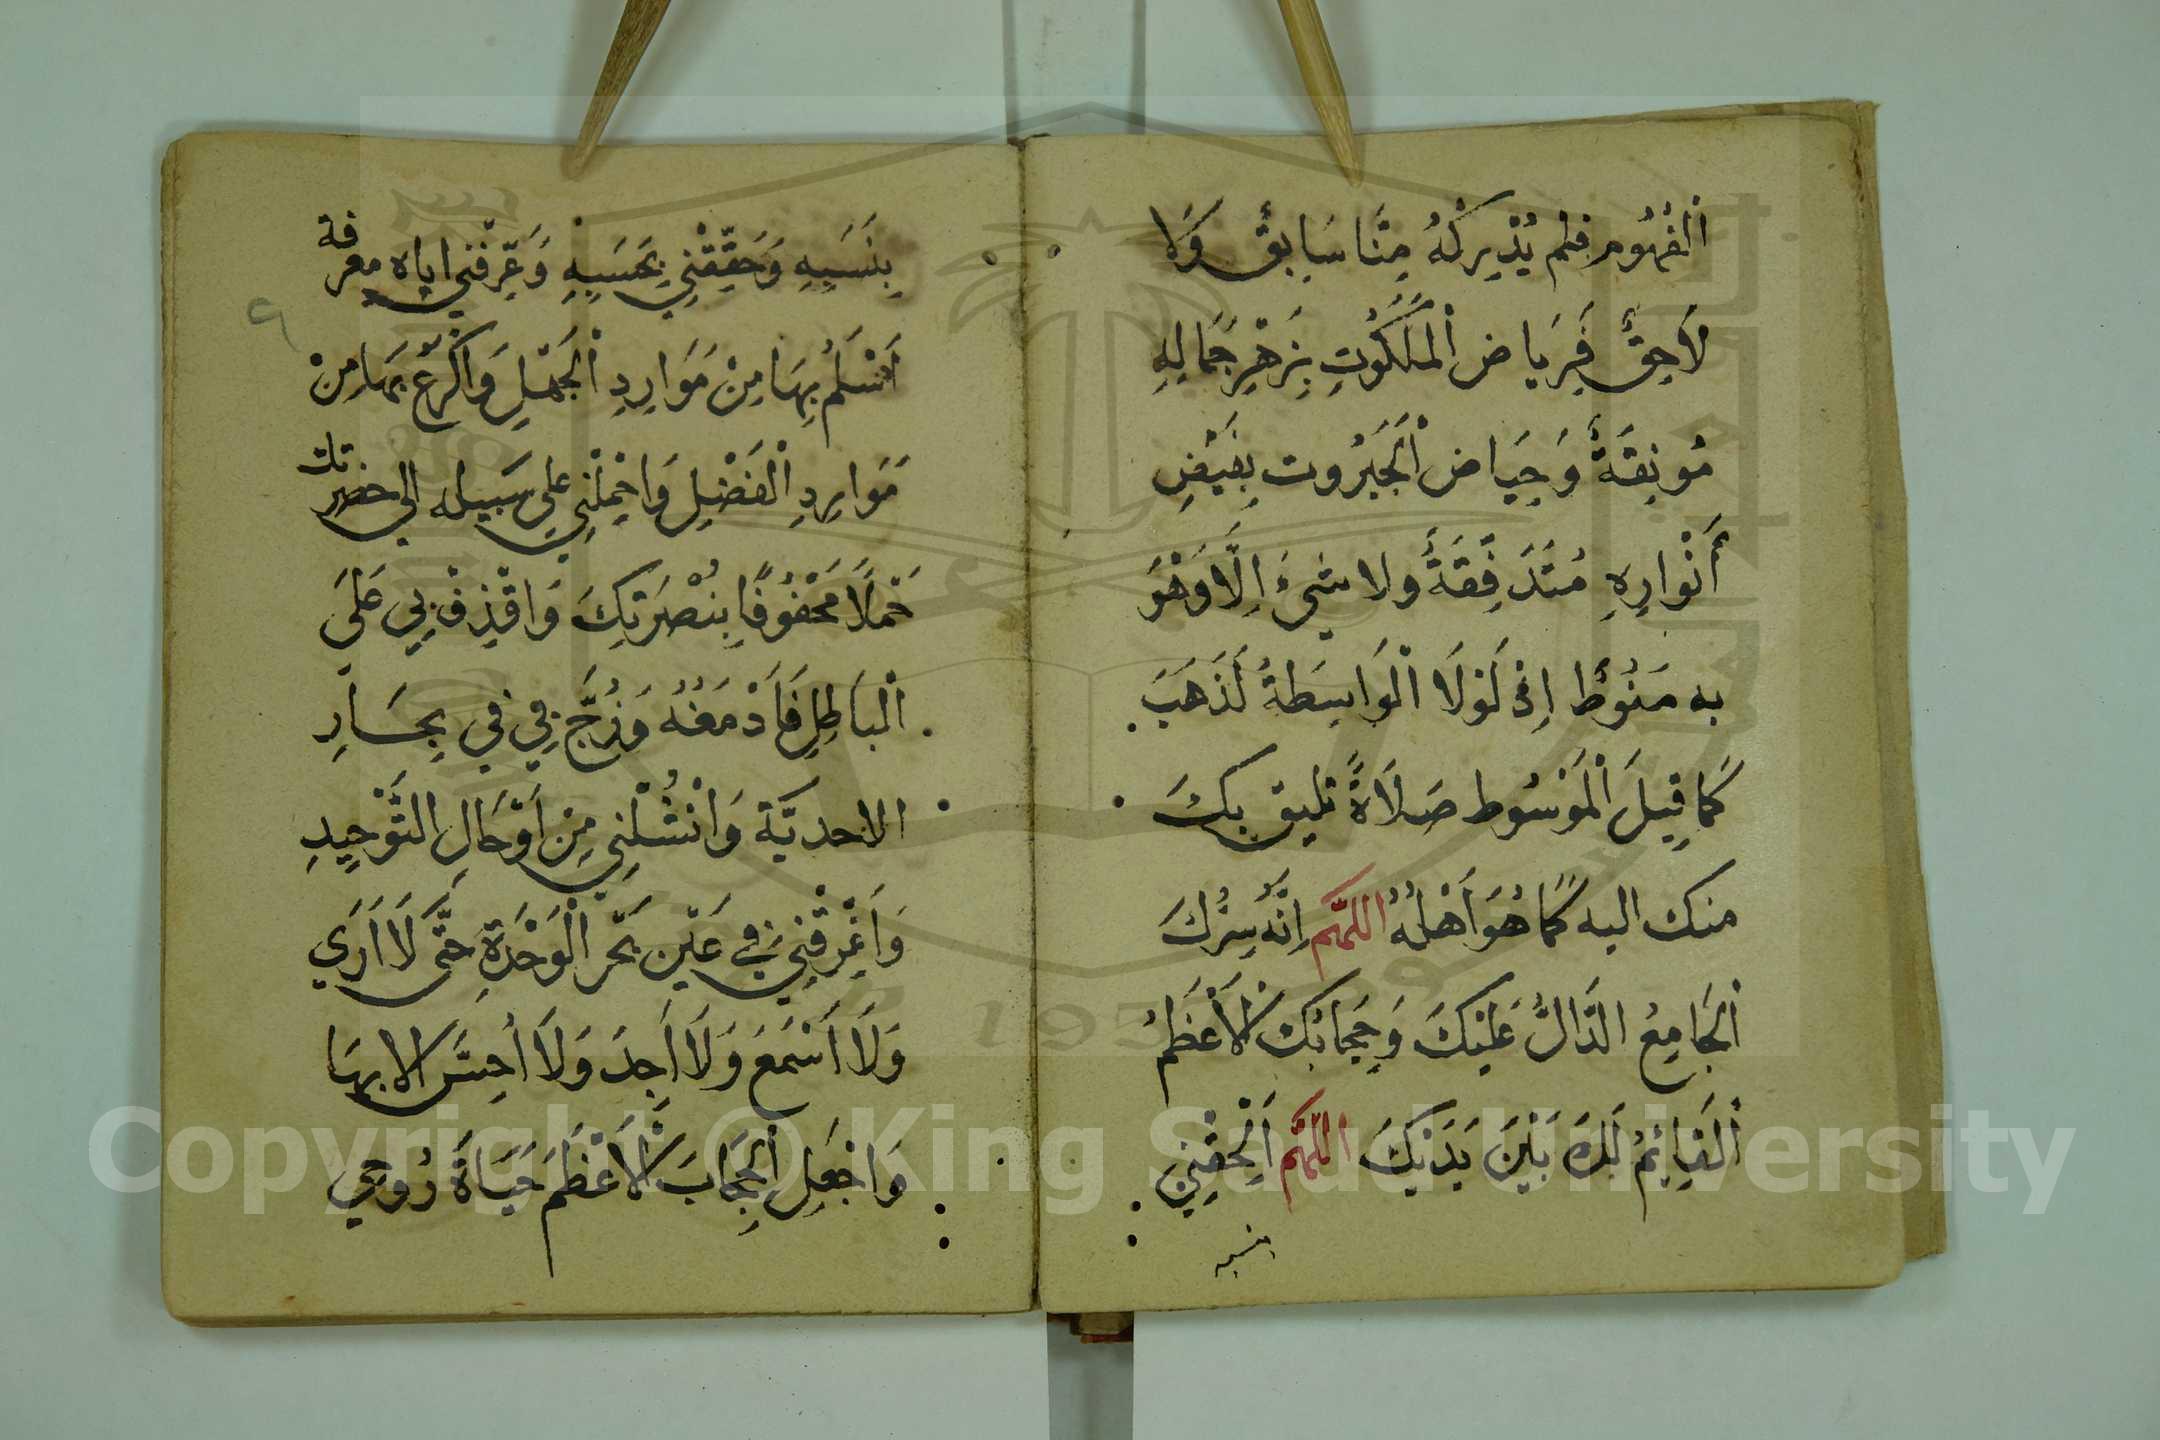 اَلْفُهُوم فلم يُدْرِكْهُ مِنَّا سَابِقٌ وَلَا
لَاحِقٌ فَرِيَاض اْلمَلَكُوتِ بِزَهْرِ جَمَالِهِ
مُونِقَةٌ وَحِيَاض اْلجَبَرُوت بِفَيْضِ
أَنْوارِهِ مُتَدَفِّقَةٌ ولا شيءَ اِلَّا وَهْوَ
به مَنُوطٌ اِذْ لَوْلَا اْلوَاسِطَةُ لَذَهَبَ
كَمَا قِيلَ اْلمَوْسُوط صَلَاةً تليق بِكَ
منك اليه كَمَا هُوَ اَهْلُهُ اللهُمَّ اِنَّهُ سِرُّكَ
اْلجَامِعُ الدَّالُّ عَلَيْكَ وَحِجَابُكَ اْلاَعْظَمُ
اَلْقَايِمُ لَكَ بَيْنَ يَدَيْكَ اللهُمَّ اَلْحِقْنِي
بنسبه
بِنَسَبِهِ وَحَقِّقْنِي بِحَسَبِهِ وَعَرِّفْنِي اياه معرفة
اَسْلَمُ بِهَا مِنْ مَوَارِدِ اْلجَهْلِ وَاَكْرَعُ بِهَا مِنْ
مَوَارِدِ اْلفَضْلِ وَاحْمِلْنِي علي سَبِيله الي حضرتك
حَمْلًا مَحْفُوفًا بِنُصْرَتِكَ وَاقْذِفْ بِي عَلَي
اْلبَاطِلِ فَاَدْمَغُهُ وَزُجَّ بِي في بِحَارِ
الاحديَّة وَانْشُلْنِي مِنْ اَوْحَالِ التَّوْحِيدِ
وَاَغْرِقْنِي فِي عَيْنِ بَحْرِ اْلوَحْدَةِ حَتَّي لَا اَرَي
وَلَا اَسْمَعَ وَلَا اَجِدَ وَلَا اُحِسَّ الا بِهَا
وَاجْعَلِ اْلحِجَابَ اْلاَعْظَمَ حَيَاةَ رُوحِي
Copyright © King Saud University